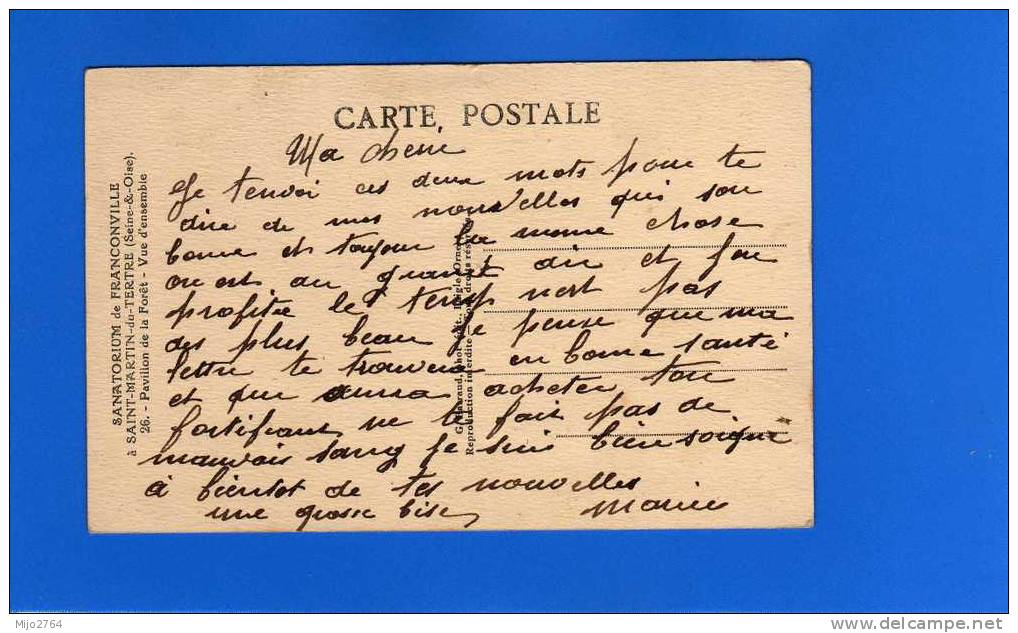 CARTE POSTALE
SANATORIUM de FRANCONVILLE
à SAINT-MARTIN-du-TERTRE (Seine-&-Oise).
26. - Pavillon de la Forêt - Vue d'ensemble
Ma cherie
Je tenvoi ces deux mots pour te
dire de mes nouvelles qui son
bonne et toujour la meme chose
on est au grand air et fau
profiter le temp nest pas
des plus beau je pense que ma
lettre te trouvera en bonne santé
et que auras acheter ton
fortifiant ne te fait pas de
mauvais sang je suis bien soigné
à bientot de tes nouvelles
une grosse bise, Marie
Reproduction interdite - droits réservés
Mijo2764
www.delcampe.net